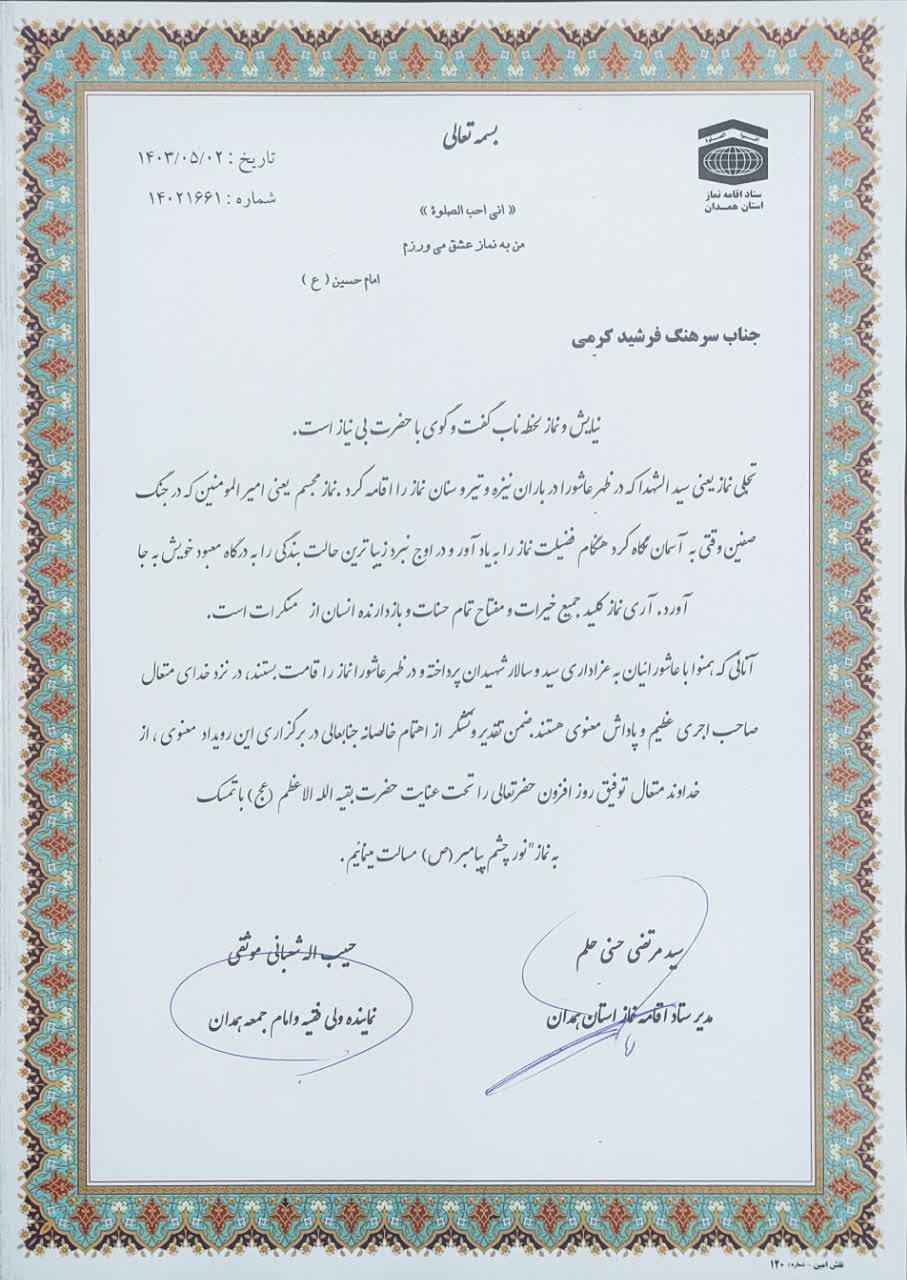 بسمه تعالی
تاریخ : ۱۴۰۳/۰۵/۰۲
شماره : ۱۴۰۲۱۶۶۱
ستاد اقامه نماز
استان همدان
« انی احب الصلوة »
من به نماز عشق می ورزم
امام حسین ( ع )
جناب سرهنگ فرشید کرمی
نیایش و نماز لحظه ناب گفت و گوی با حضرت بی نیاز است.
تجلی نماز یعنی سید الشهدا که در ظهر عاشورا در باران نیزه و تیر و سنان نماز را اقامه کرد . نماز مجسم یعنی امیر المومنین که در جنگ
صفین وقتی به آسمان نگاه کرد هنگام فضیلت نماز را به یاد آور و در اوج نبرد زیبا ترین حالت بندگی را به درگاه معبود خویش به جا
آورد. آری نماز کلید جمیع خیرات و مفتاح تمام حسنات و بازدارنده انسان از منکرات است.
آنانی که همنوا با عاشورائیان به عزاداری سید و سالار شهیدان پرداخته و در ظهر عاشورا نماز را قامت بستند، در نزد خدای متعال
صاحب اجری عظیم و پاداش معنوی هستند.ضمن تقدیر وتشکر از اهتمام خالصانه جنابعالی در برگزاری این رویداد معنوی ، از
خداوند متعال توفیق روز افزون حضرتعالی را تحت عنایت حضرت بقیه الله الاعظم (عج) با تمسک
به نماز "نور چشم پیامبر (ص) مسالت مینمائیم .
سید مرتضی حسنی حلم
مدیر ستاد اقامه نماز استان همدان
حبیب اله شعبانی موثقی
نماینده ولی فقیه وامام جمعه همدان
نقش امین - شماره ۱۲۰